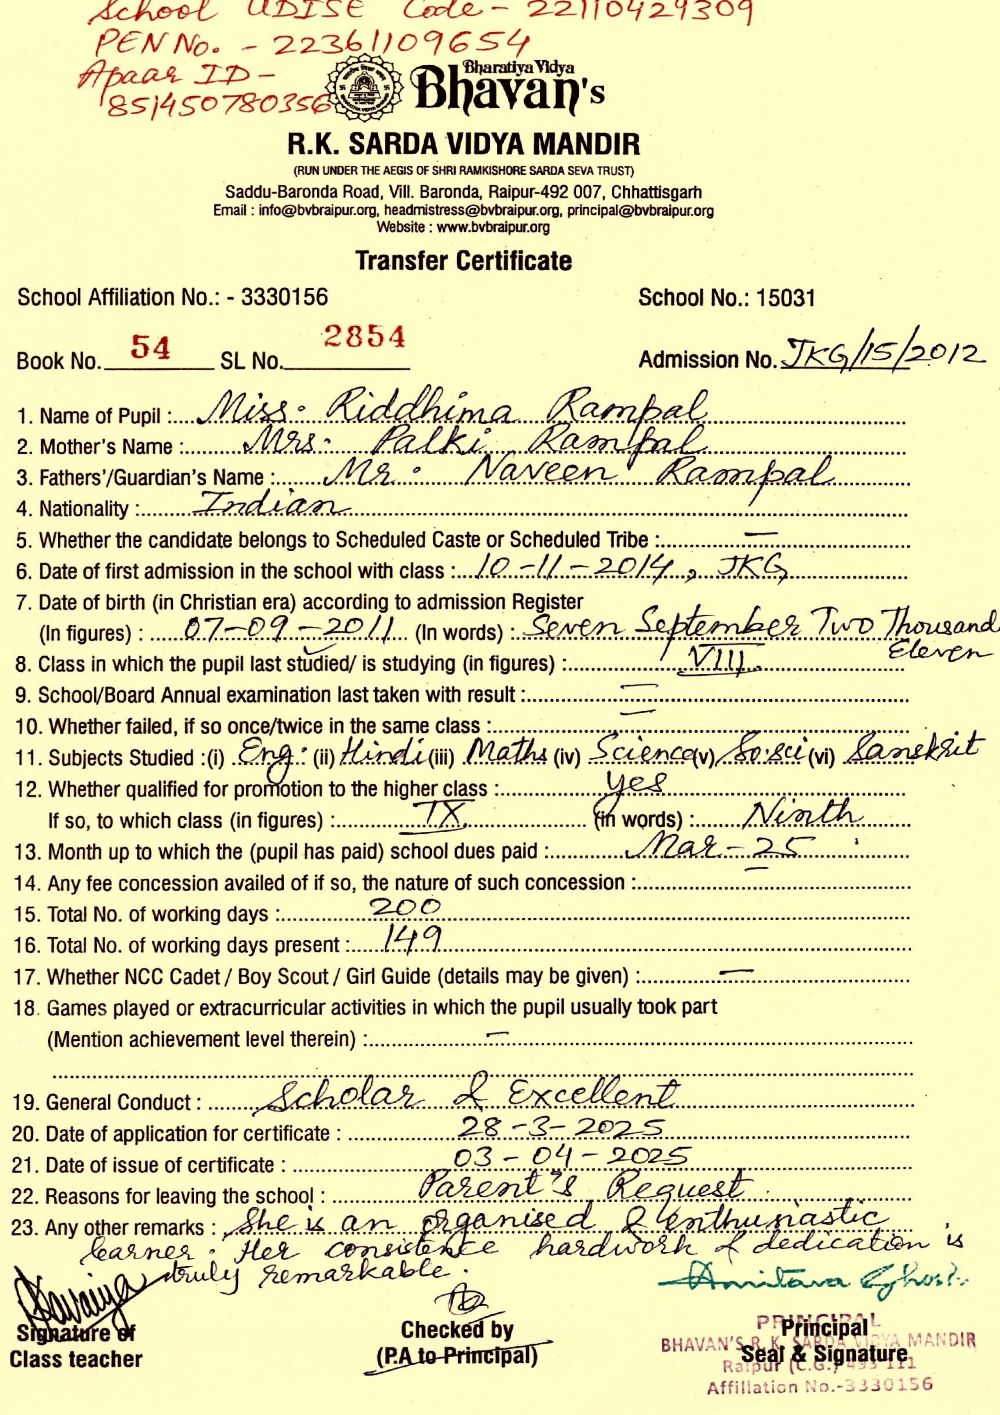 School UDISE Code - 22110429309
PEN No. - 22361109654
Apaar ID -
851450780356
Bharatiya Vidya
Bhavan's
R.K. SARDA VIDYA MANDIR
(RUN UNDER THE AEGIS OF SHRI RAMKISHORE SARDA SEVA TRUST)
Saddu-Baronda Road, Vill. Baronda, Raipur-492 007, Chhattisgarh
Email : info@bvbraipur.org, headmistress@bvbraipur.org, principal@bvbraipur.org
Website : www.bvbraipur.org
Transfer Certificate
School Affiliation No.: - 3330156 School No.: 15031
Book No. 54 SL No. 2854 Admission No. JKG/15/2012
1. Name of Pupil : Miss. Riddhima Rampal
2. Mother's Name : Mrs. Palki Rampal
3. Fathers'/Guardian's Name : Mr. Naveen Rampal
4. Nationality : Indian
5. Whether the candidate belongs to Scheduled Caste or Scheduled Tribe : —
6. Date of first admission in the school with class : 10-11-2014, JKG
7. Date of birth (in Christian era) according to admission Register
(In figures) : 07-09-2011 (In words) : Seven September Two Thousand
Eleven
8. Class in which the pupil last studied/ is studying (in figures) : VIII
9. School/Board Annual examination last taken with result : —
10. Whether failed, if so once/twice in the same class : —
11. Subjects Studied :(i) Eng. (ii) Hindi (iii) Maths (iv) Science (v) So.sci (vi) Sanskrit
12. Whether qualified for promotion to the higher class : yes
If so, to which class (in figures) : IX (in words) : Ninth
13. Month up to which the (pupil has paid) school dues paid : Mar-25
14. Any fee concession availed of if so, the nature of such concession : —
15. Total No. of working days : 200
16. Total No. of working days present : 149
17. Whether NCC Cadet / Boy Scout / Girl Guide (details may be given) : —
18. Games played or extracurricular activities in which the pupil usually took part
(Mention achievement level therein) : —
19. General Conduct : Scholar & Excellent
20. Date of application for certificate : 28-3-2025
21. Date of issue of certificate : 03-04-2025
22. Reasons for leaving the school : Parent's Request.
23. Any other remarks : She is an organised & enthuniastic
learner. Her consistence hardwork & dedication is
truly remarkable.
Amitava Ghosh
Signature of
Class teacher
Checked by
(P.A to Principal)
Principal
Seal & Signature
PRINCIPAL
BHAVAN'S R.K. SARDA VIDYA MANDIR
Raipur (C.G.) 493 111
Affiliation No.-3330156